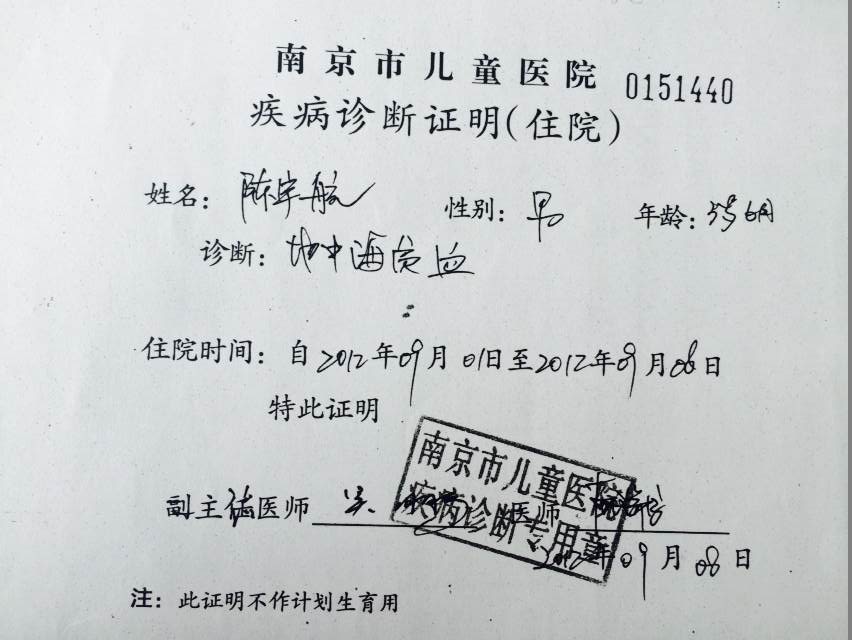 南京市儿童医院 0151440
疾病诊断证明(住院)
姓名: 陈宇航 性别: 男 年龄: 5岁6月
诊断: 地中海贫血
住院时间: 自2012年09月01日至2012年09月08日
特此证明
南京市儿童医院
疾病诊断专用章
副主任医师 医师
2012年09月08日
注: 此证明不作计划生育用